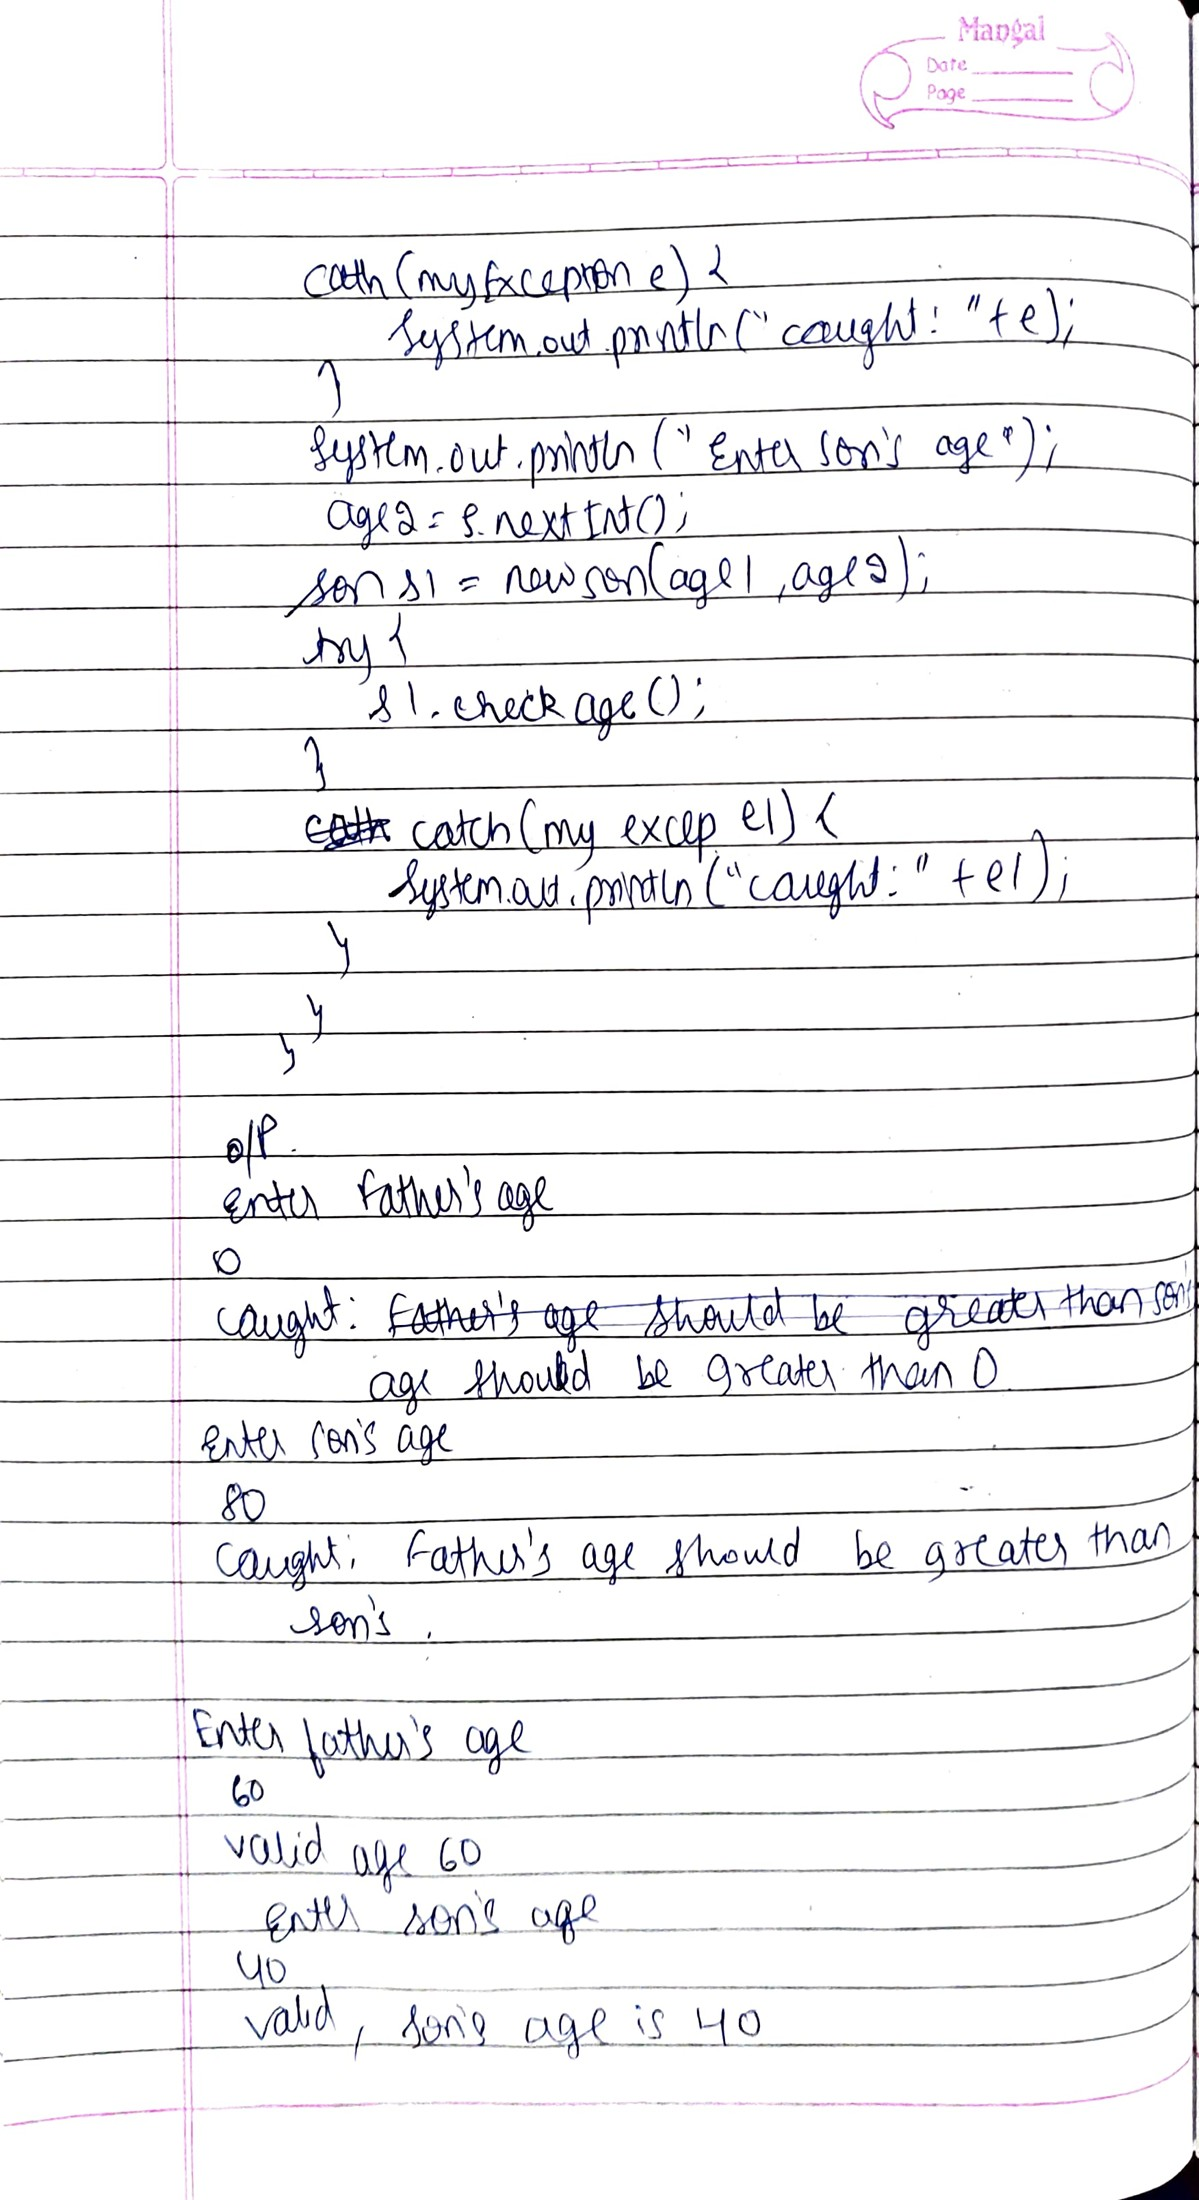 Mangal
Date
Page
cath (myException e) {
System.out.println(" caught: "+e);
}
System.out.println (" Enter son's age");
age2 = s.nextInt();
son s1 = new son(age1, age2);
try {
s1.check age();
}
cath catch (my excep e1) {
System.out.println("caught:" +e1);
}
}
}
O/P.
Enter Father's age
0
caught: Father's age should be greater than son's
age should be greater than 0
Enter son's age
80
Caught: Father's age should be greater than
son's.
Enter father's age
60
valid age 60
Enter son's age
40
valid, son's age is 40